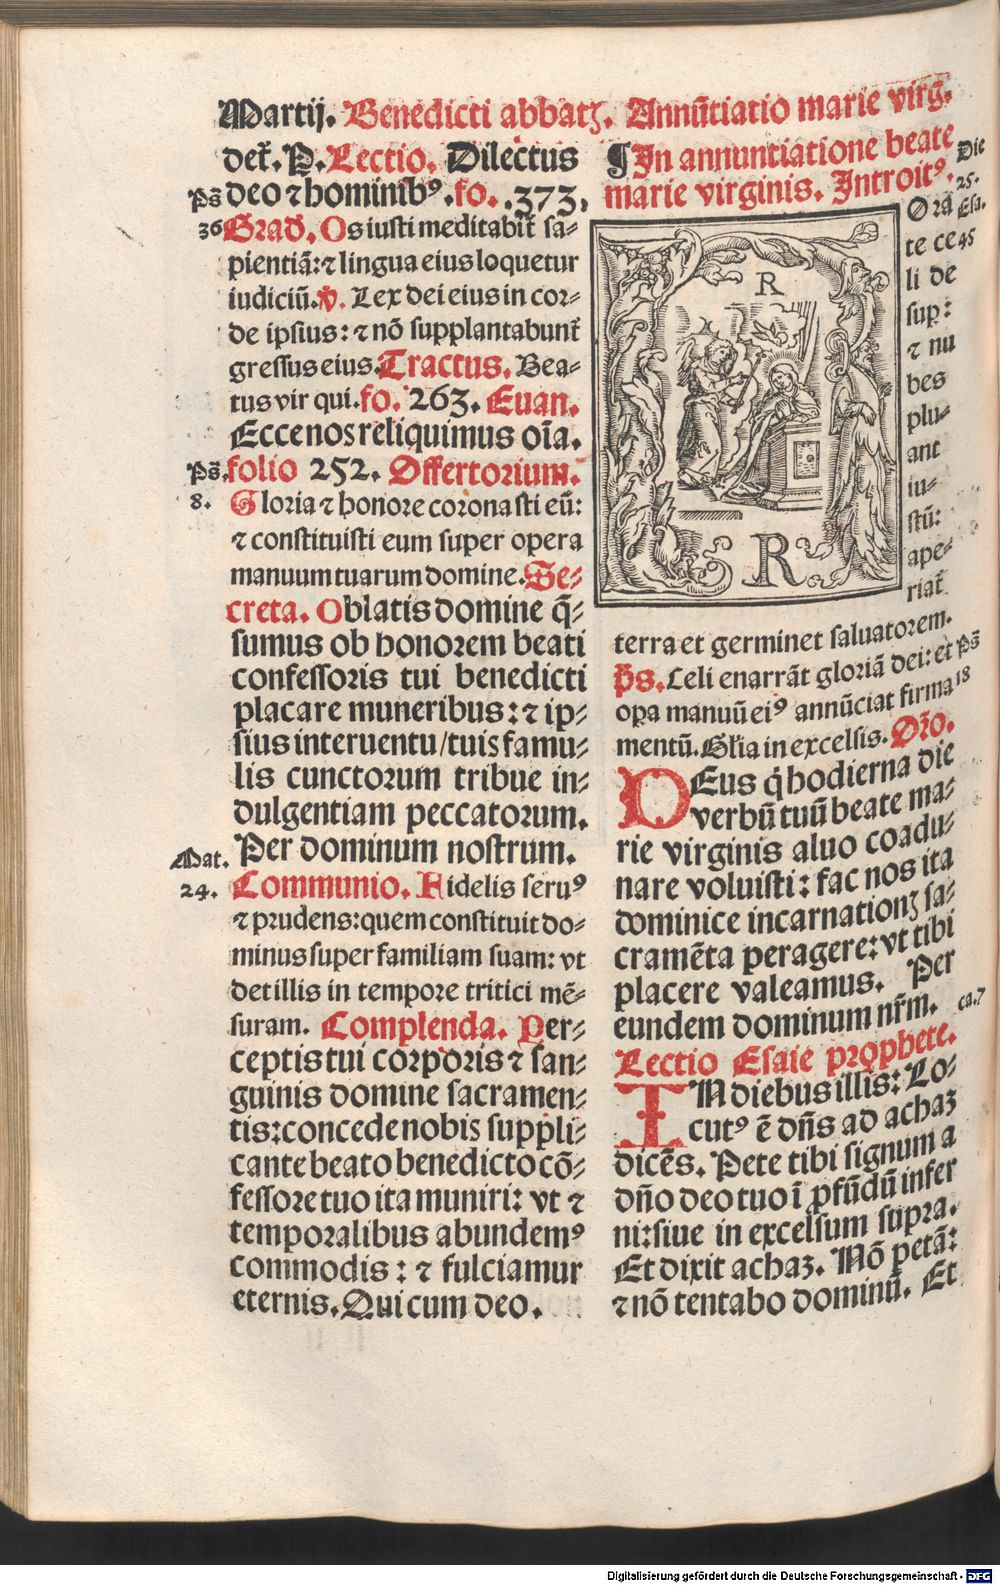 Martij. Benedicti abbatꝫ. Annūtiatio marie virg.
det̄. P. Lectio. Dilectus
Ps̄ deo ⁊ hominibꝰ. fo. .373.
36 Grad̄. Os iusti meditabit̄ sa⸗
pientiā: ⁊ lingua eius loquetur
iudiciū. v̄. Lex dei eius in cor⸗
de ipsius: ⁊ nō supplantabunt̄
gressus eius. Tractus. Bea⸗
tus vir qui. fo. 263. Euan.
Ecce nos reliquimus oīa.
Ps̄. folio 252. Offertorium.
8. Gloria ⁊ honore coronasti eū:
⁊ constituisti eum super opera
manuum tuarum domine. Se⸗
creta. Oblatis domine q̄⸗
sumus ob honorem beati
confessoris tui benedicti
placare muneribus: ⁊ ip⸗
sius interuentu/tuis famu⸗
lis cunctorum tribue in⸗
dulgentiam peccatorum.
Mat. Per dominum nostrum.
24. Communio. Fidelis seruꝰ
⁊ prudens: quem constituit do⸗
minus super familiam suam: vt
det illis in tempore tritici mē⸗
suram. Complenda. Per⸗
ceptis tui corporis ⁊ san⸗
guinis domine sacramen⸗
tis: concede nobis suppli⸗
cante beato benedicto cō⸗
fessore tuo ita muniri: vt ⁊
temporalibus abundemꝰ
commodis: ⁊ fulciamur
eternis. Qui cum deo.
¶ In annuntiatione beate Die
marie virginis. Introitꝰ. 25.
R
R
Ora Esa.
te ce 45
li de
sup:
⁊ nu
bes
plu⸗
ant
iu⸗
stū:
ape⸗
riat̄
terra et germinet saluatorem.
p̄s. Celi enarrāt gloriā dei: et Ps̄
opa manuū eiꝰ annūciat firma 18
mentū. Gl̄ia in excelsis. Or̄o.
DEus q̇ hodierna die
verbū tuū beate ma⸗
rie virginis aluo coadu⸗
nare voluisti: fac nos ita
dominice incarnationꝫ sa⸗
cramēta peragere: vt tibi
placere valeamus. Per
eundem dominum nr̄m. ca.7
Lectio Esaie prophete.
IN diebus illis: Lo⸗
cutꝰ ē dn̄s ad achaz
dicēs. Pete tibi signum a
dn̄o deo tuo ī ꝓfūdū infer
ni: siue in excelsum supra.
Et dixit achaz. Nō petā:
⁊ nō tentabo dominū. Et
Digitalisierung gefördert durch die Deutsche Forschungsgemeinschaft - DFG